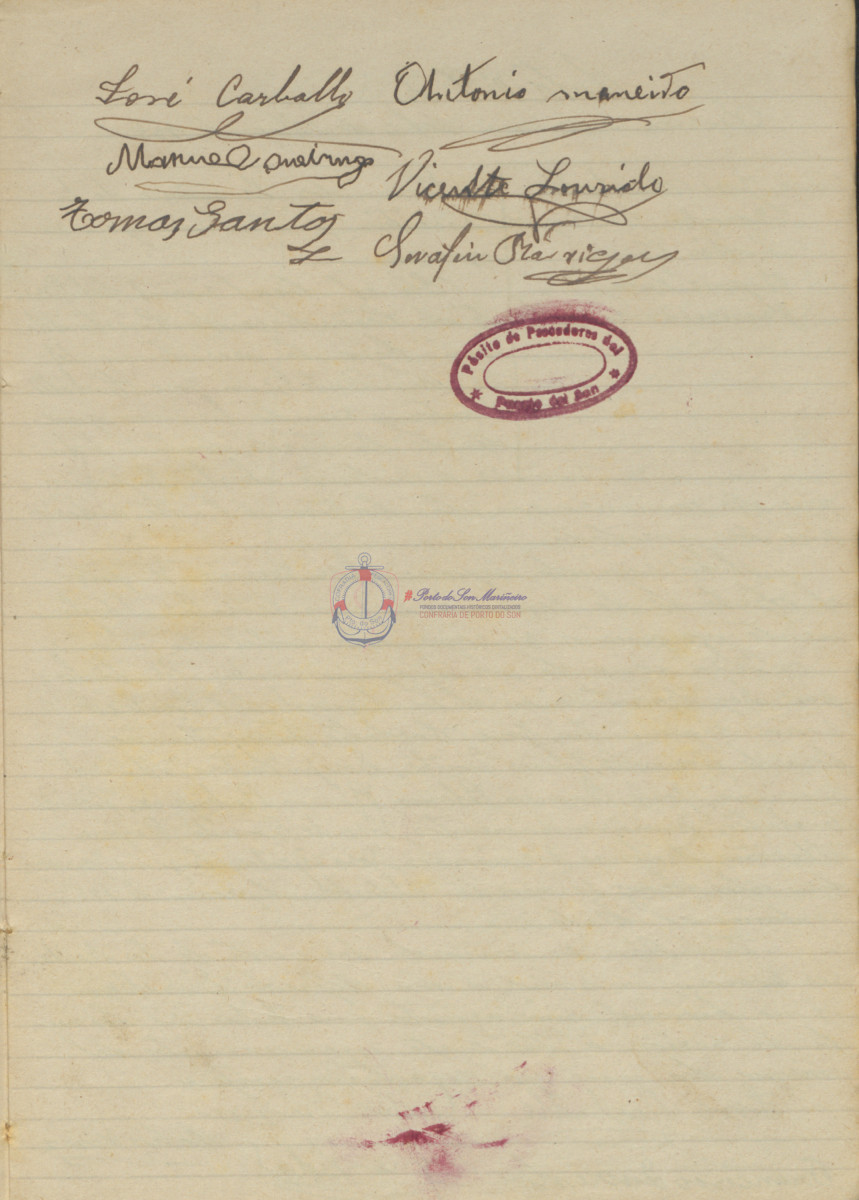 José Carballo Antonio maneiro
Manuel
Vicente Lourido
Tomas Santos
Serafin
Pósito de Pescadores del
Puerto del Son
#Porto do Son Mariñeiro
FONDOS DOCUMENTAIS HISTÓRICOS DIXITALIZADOS
CONFRARÍA DE PORTO DO SON